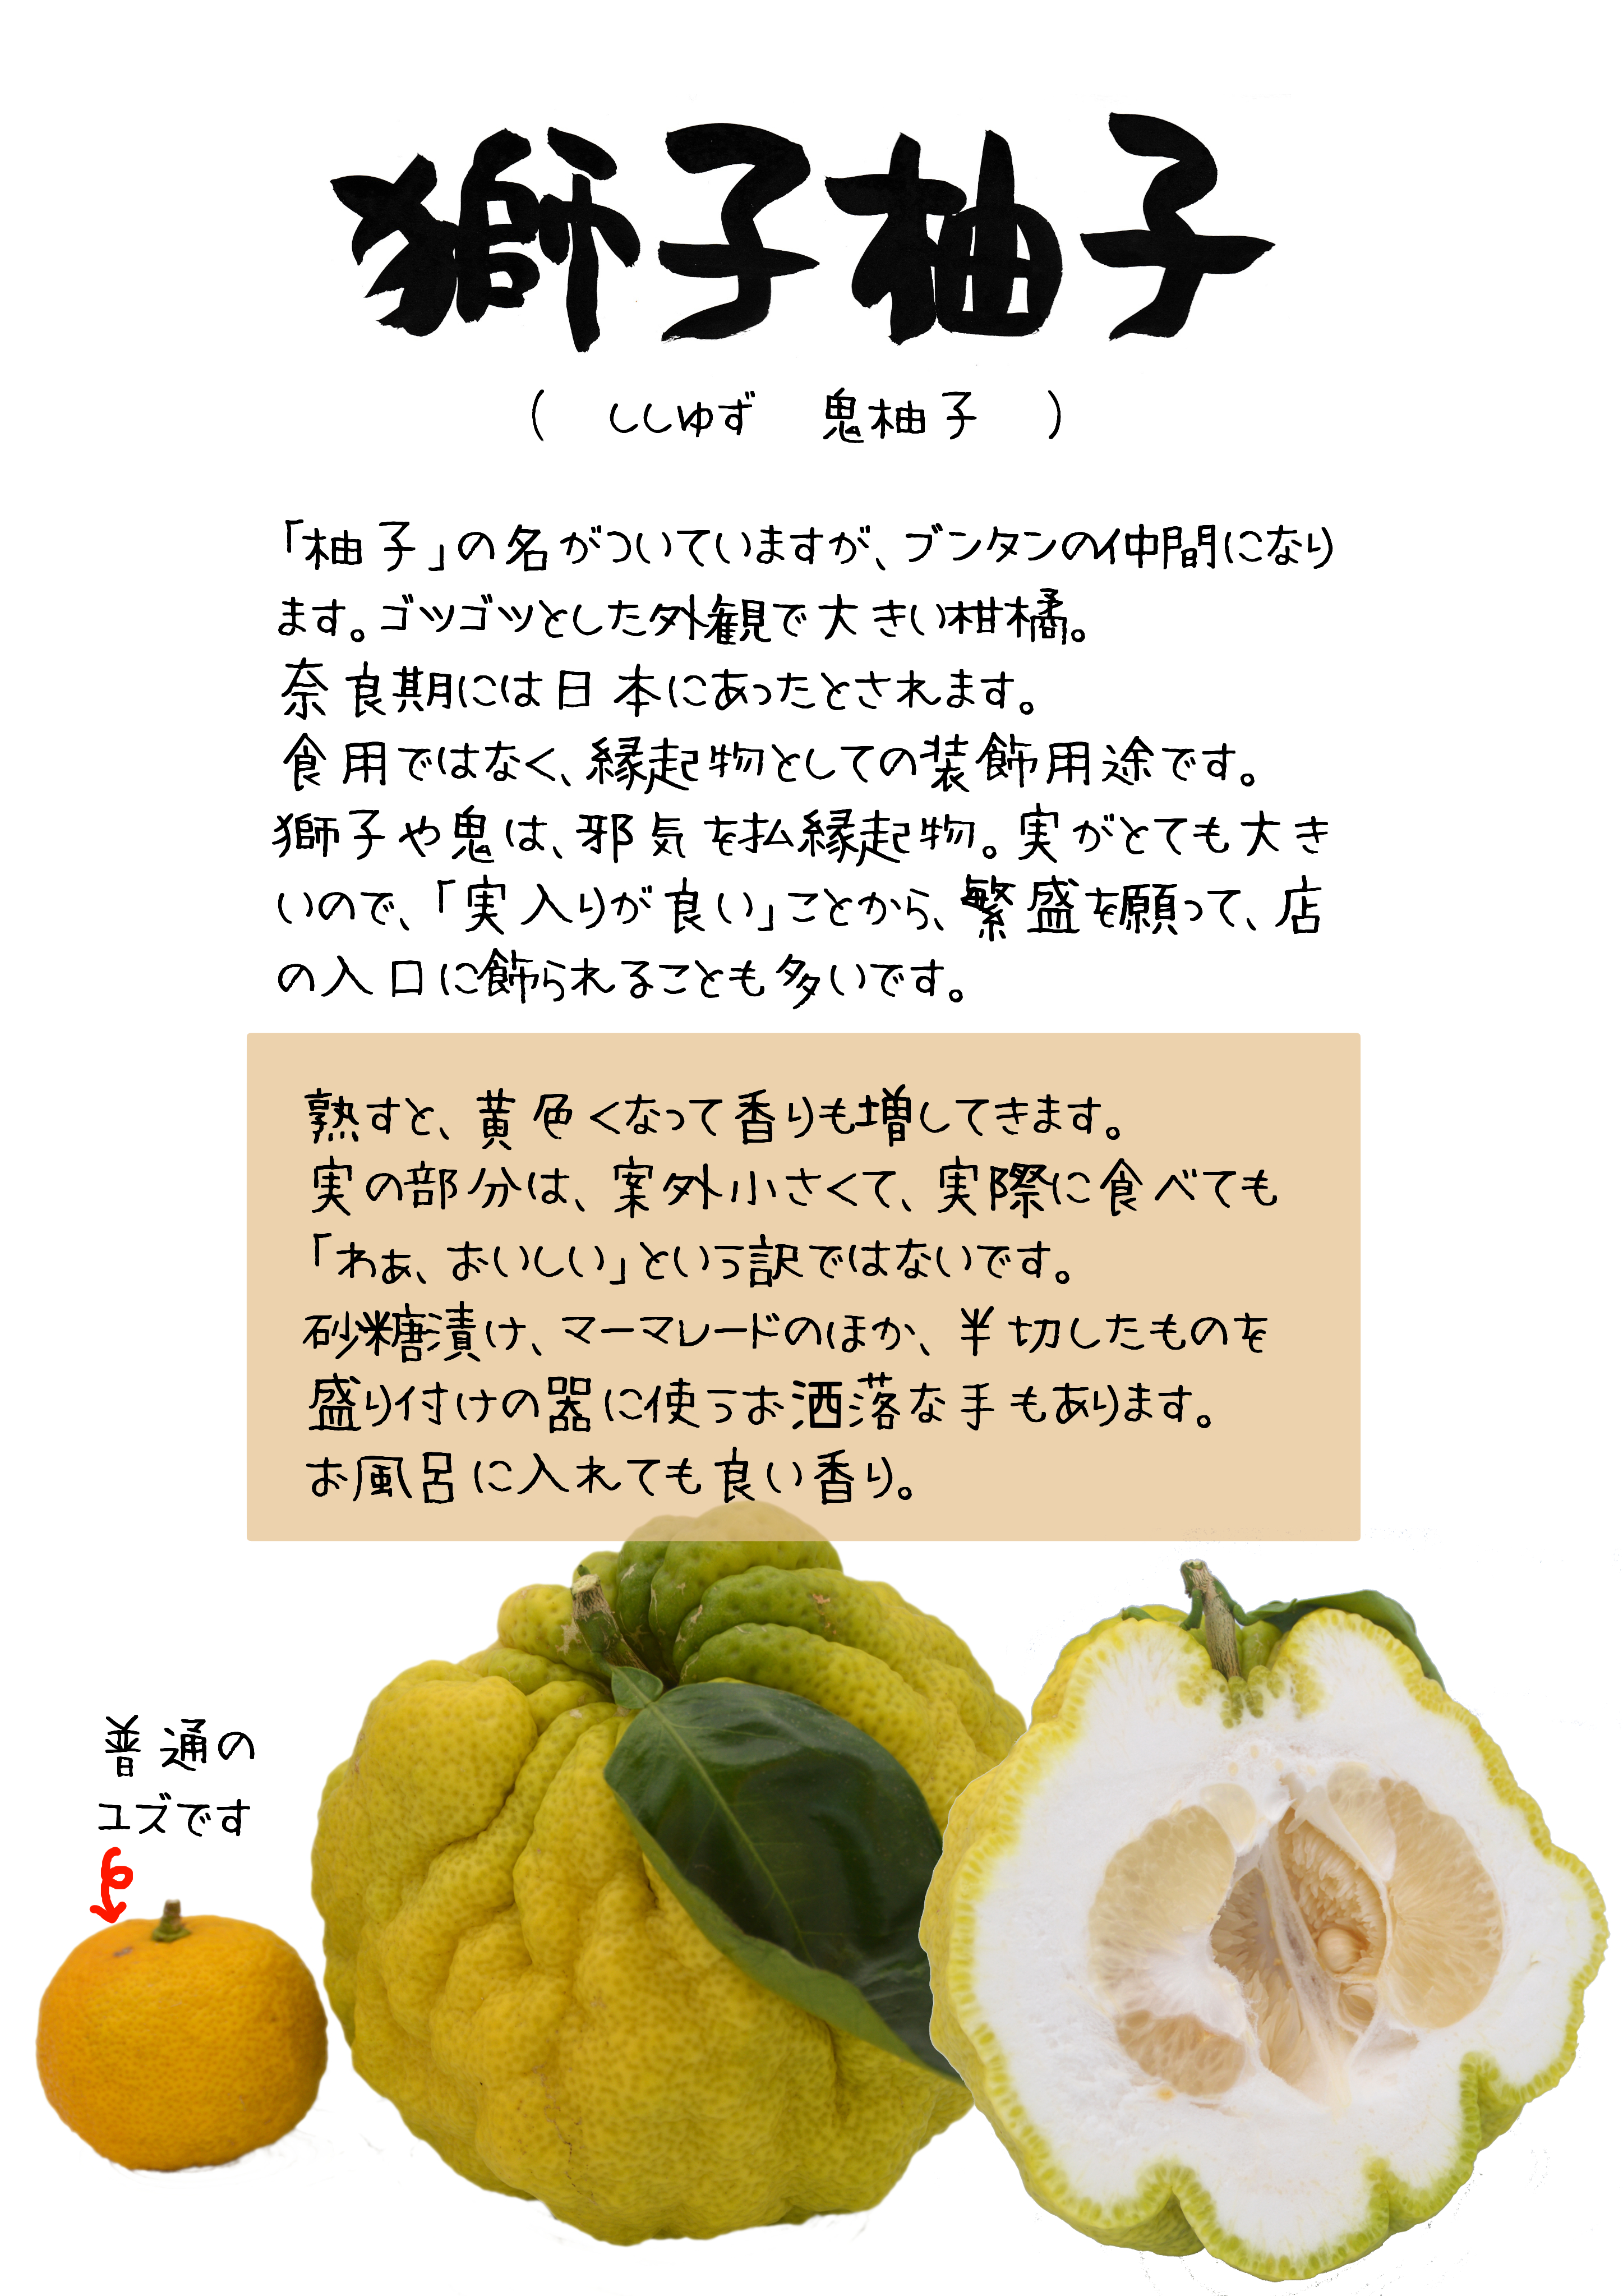 獅子柚子
( ししゆず 鬼柚子 )
「柚子」の名がついていますが、ブンタンの仲間になり
ます。ゴツゴツとした外観で大きい柑橘。
奈良期には日本にあったとされます。
食用ではなく、縁起物としての装飾用途です。
獅子や鬼は、邪気を払縁起物。実がとても大き
いので、「実入りが良い」ことから、繁盛を願って、店
の入口に飾られることも多いです。
熟すと、黄色くなって香りも増してきます。
実の部分は、案外小さくて、実際に食べても
「わぁ、おいしい」という訳ではないです。
砂糖漬け、マーマレードのほか、半切したものを
盛り付けの器に使うお洒落な手もあります。
お風呂に入れても良い香り。
普通の
ユズです